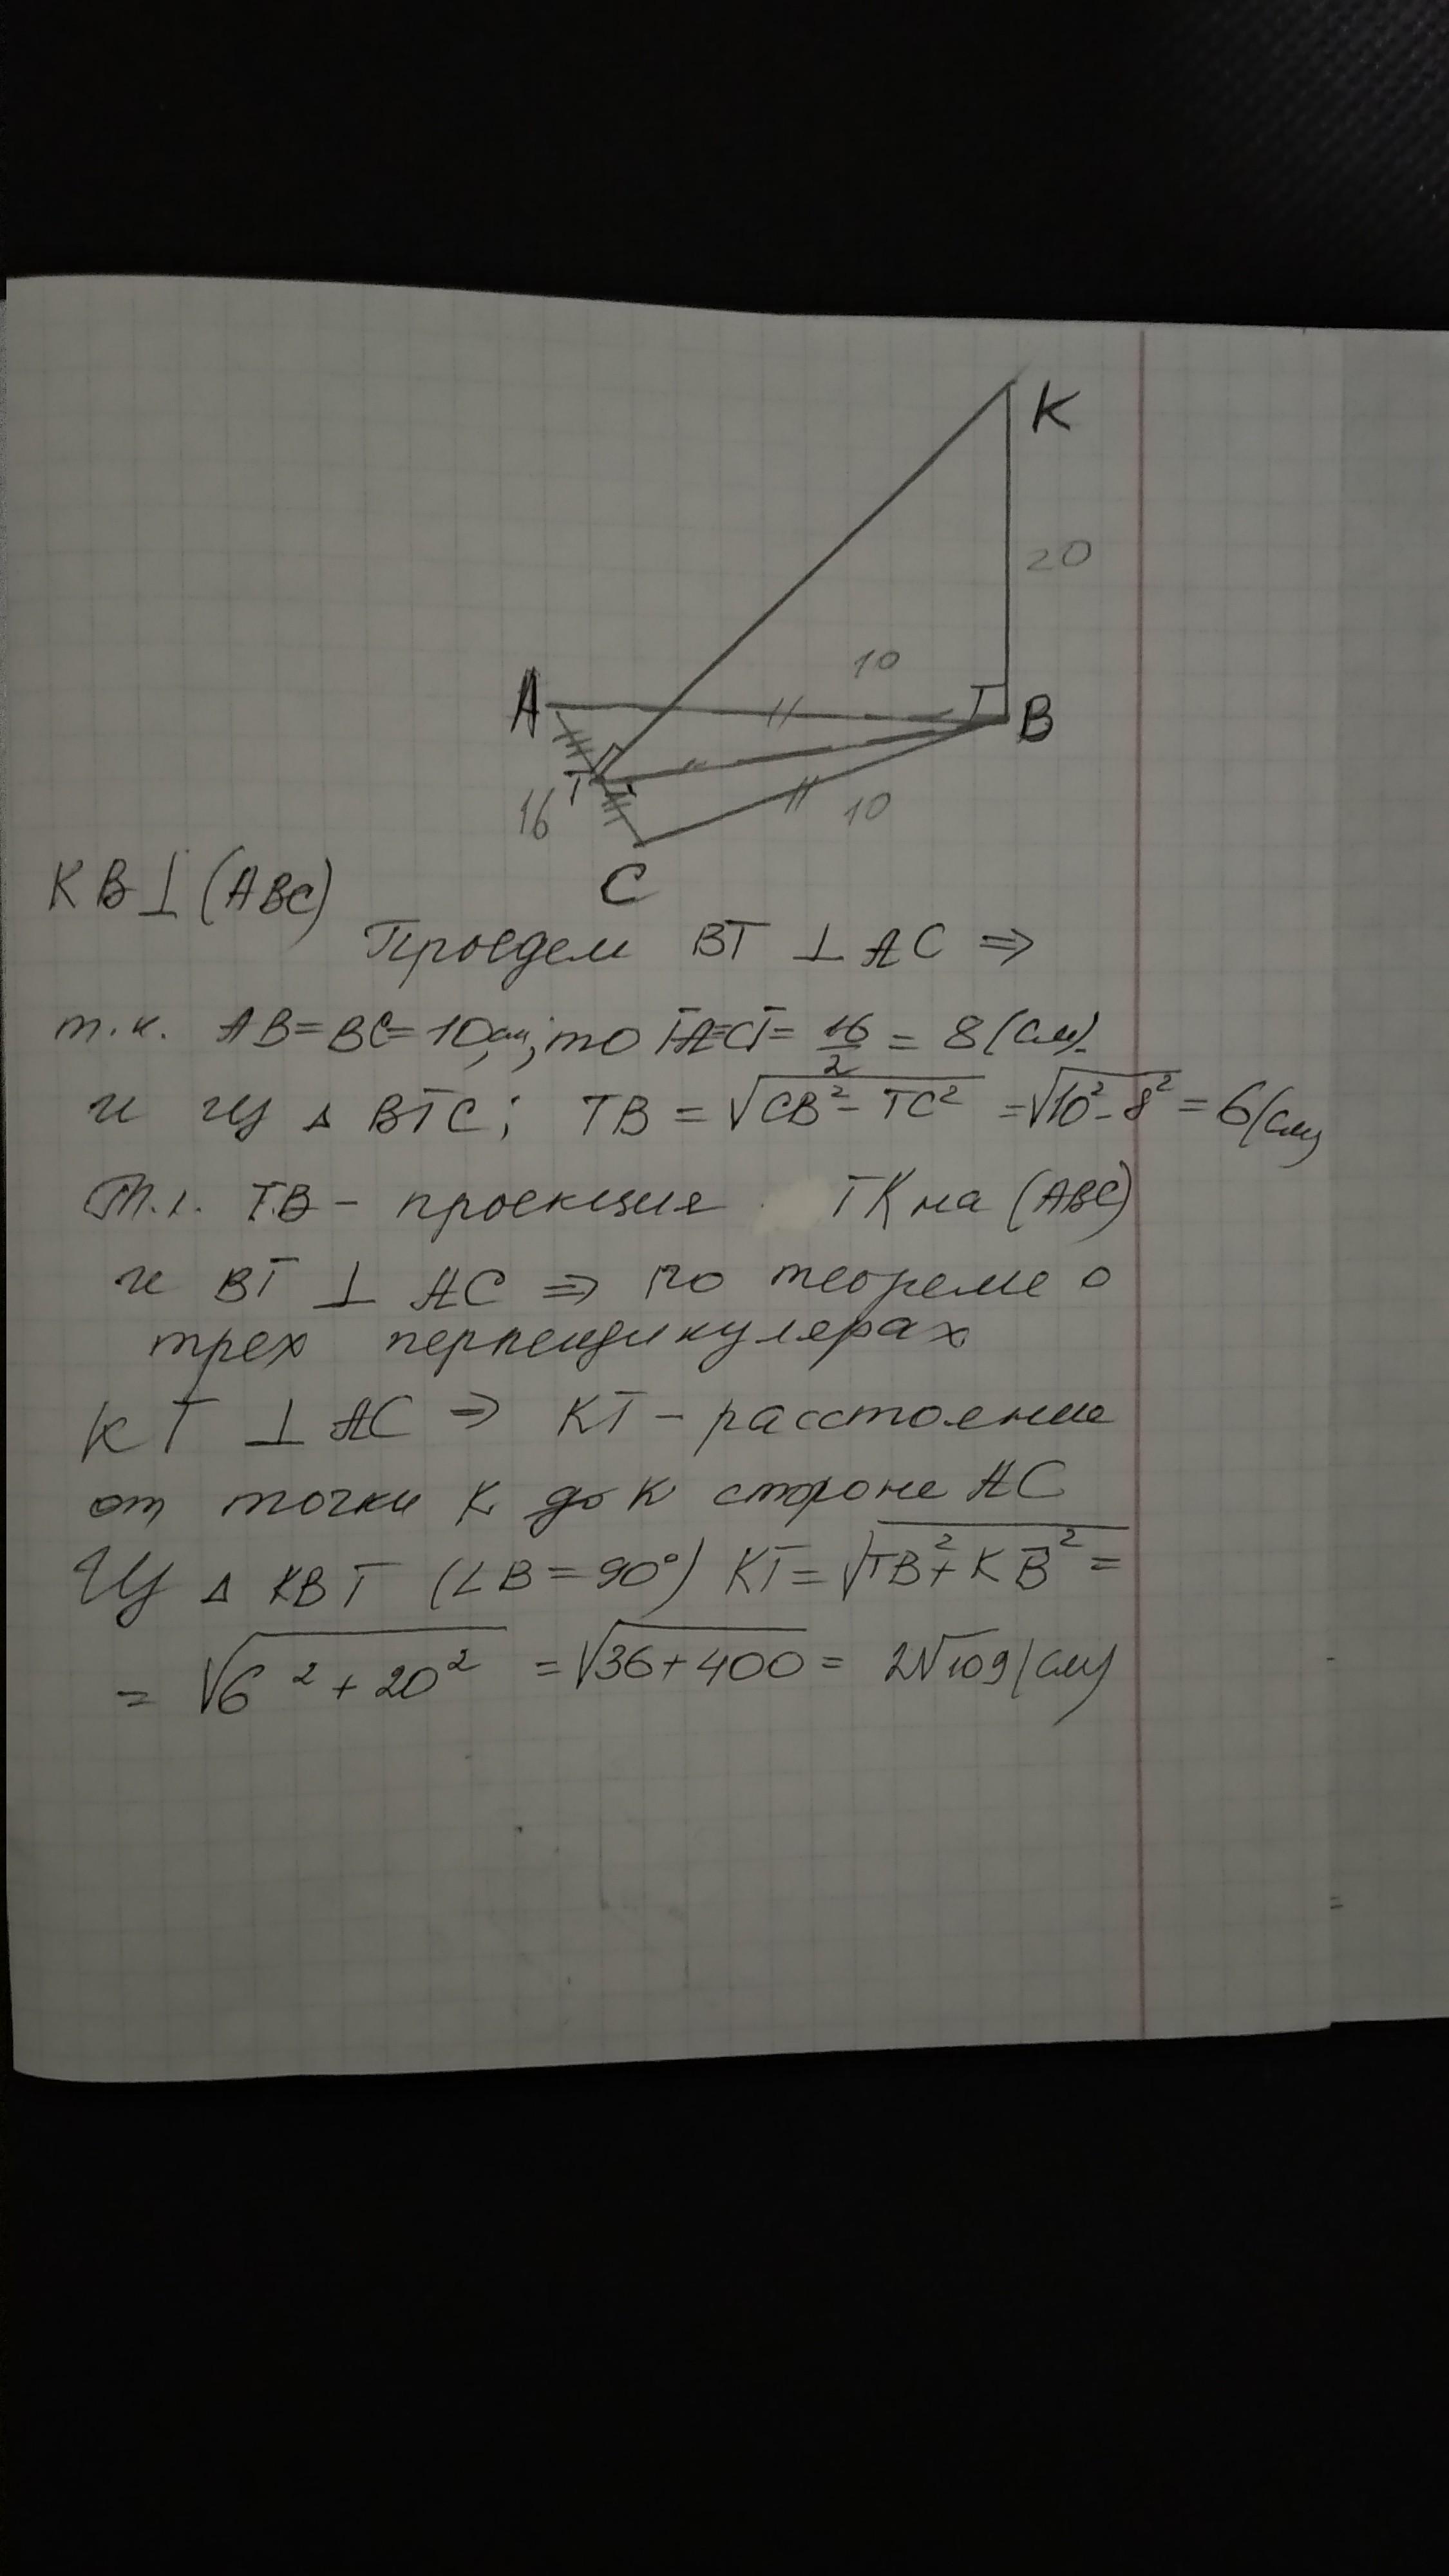 K
20
10
A
B
T
16
10
C
KB⊥(ABC)
Проведем BT ⊥ AC ⇒
т.к. AB=BC=10см; то TA=CT= 16/2 = 8(см).
и из △ BTC; TB = √(CB²- TC²) =√(10²-8²) = 6(см)
Т.к. TB - проекция TK на (ABC)
и BT ⊥ AC ⇒ по теореме о
трех перпендикулярах
KT ⊥ AC ⇒ KT - расстояние
от точки K до к стороне AC
Из △ KBT (∠B=90°) KT=√(TB²+KB²) =
= √(6²+20²) =√(36+400) = 2√109(см)